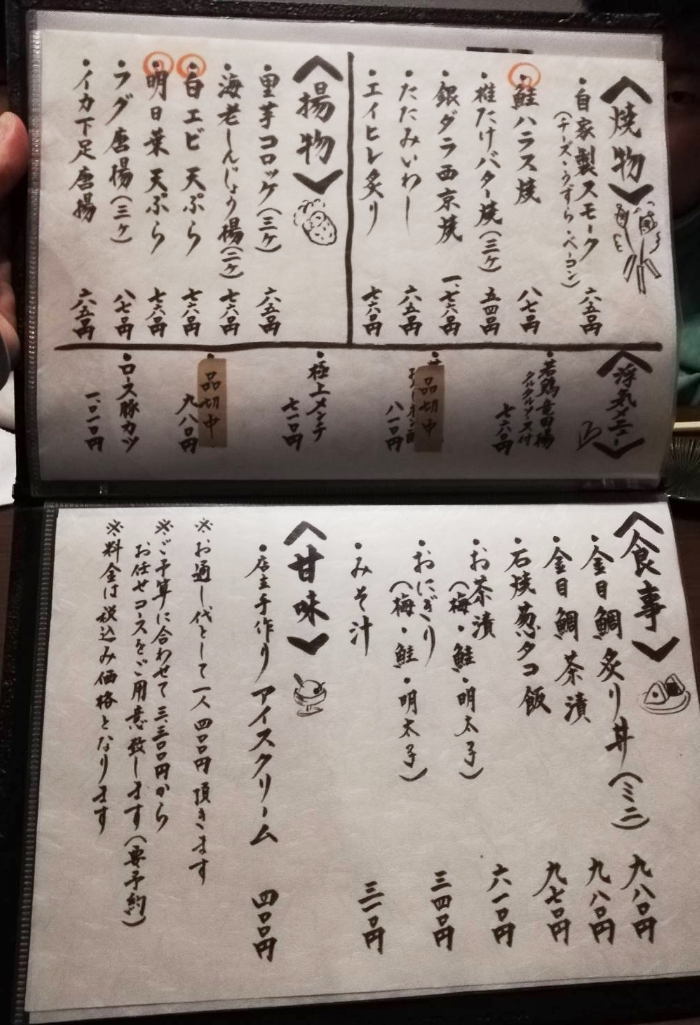 〈焼物〉
・自家製スモーク
(チーズ・うずら・ベーコン)
六五〇円
・鮭ハラス焼
八七〇円
・椎たけバター焼(三ケ)
五四〇円
・銀ダラ西京焼
一、七六〇円
・たたみいわし
六五〇円
・エイヒレ炙り
七六〇円
〈揚物〉
・里芋コロッケ(三ケ)
六五〇円
・海老しんじょう揚(二ケ)
七六〇円
・白エビ天ぷら
七六〇円
・明日葉天ぷら
七六〇円
・フグ唐揚(三ケ)
八七〇円
・イカ下足唐揚
六五〇円
〈浮気メニュー〉
・若鶏竜田揚
タルタルソース付
七六〇円
品切中
八一〇円
・極上メンチ
七一〇円
品切中
九八〇円
・ロース豚カツ
一、〇一〇円
〈食事〉
・金目鯛炙り丼(ミニ)
九八〇円
・金目鯛茶漬
九八〇円
・石焼葱タコ飯
九七〇円
・お茶漬
(梅・鮭・明太子)
六一〇円
・おにぎり
(梅・鮭・明太子)
三四〇円
・みそ汁
三一〇円
〈甘味〉
・店主手作りアイスクリーム
四〇〇円
※お通し代として一人四〇〇円頂きます
※ご予算に合わせて三、三〇〇円から
お任せコースをご用意致します(要予約)
※料金は税込み価格となります